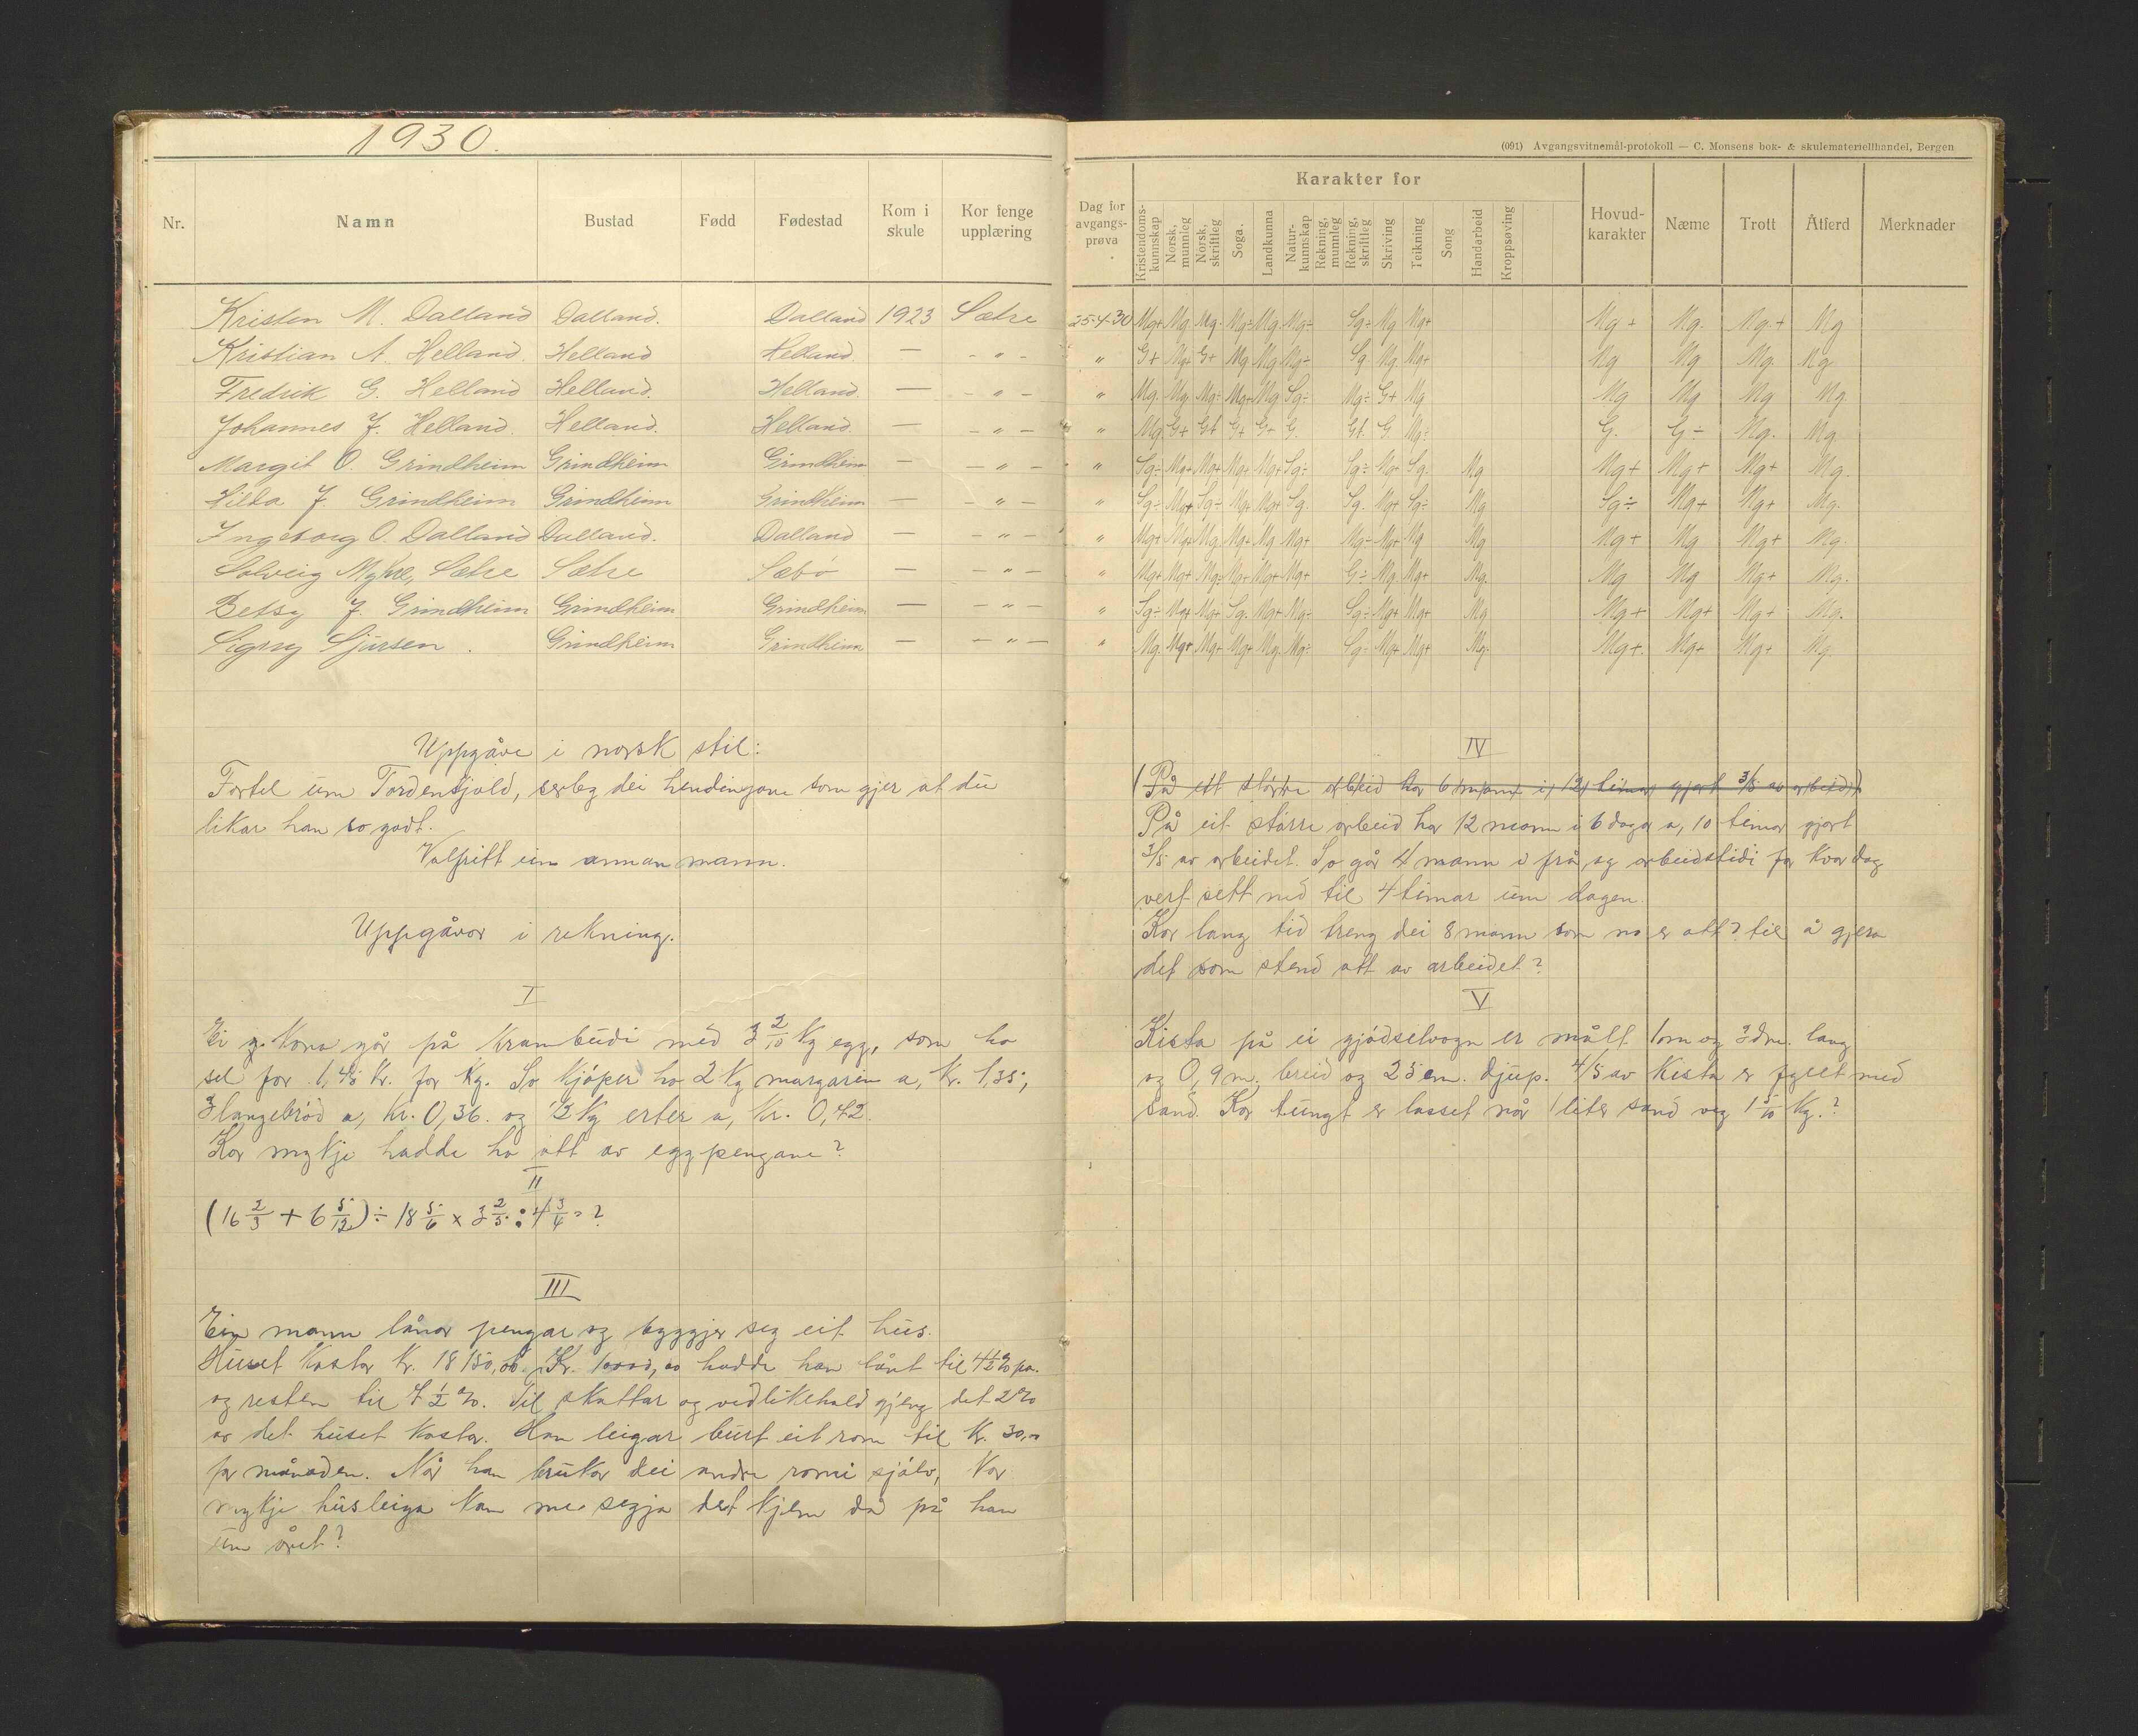 1930.
(091) Avgangsvitnemål-protokoll — C. Monsens bok- & skulemateriellhandel, Bergen
Nr. Namn Bustad Fødd Fødestad Kom i skule Kor fenge upplæring
Dag for avgangs-prøva Karakter for Hovud-karakter Næme Trott Åtferd Merknader
Kristendoms-kunnskap Norsk, munnleg Norsk, skriftleg Soga. Landkunna Natur-kunnskap Rekning, munnleg Rekning, skriftleg Skriving Teikning Song Handarbeid Kroppsøving
Kristen M. Dalland Dalland. Dalland 1923 Sætre 25-4-30 Mg+ Mg Mg. Mg÷ Mg. Mg÷ Sg÷ Mg Mg+ Mg+ Mg. Mg.+ Mg
Kristian A. Helland. Helland Helland. — - " - " G+ Mg+ G+ Mg Mg. Mg÷ Sg. Mg. Mg+ Mg Mg Mg. Mg
Fredrik G. Helland Helland. Helland. — - " - " Mg. Mg Mg÷ Mg+ Mg Sg÷ Mg÷ G+ Mg Mg Mg Mg Mg
Johannes J. Helland. Helland. Helland. — - " - " Mg G+ G+ G+ G+ G. G+. G Mg÷ G. G÷ Mg. Mg
Margit O. Grindheim Grindheim Grindheim — - " - " Sg÷ Mg+ Mg+ Mg+ Mg+ Sg÷ Sg÷ Mg+ Sg. Mg Mg+ Mg+ Mg+ Mg.
Hilda J. Grindheim Grindheim Grindheim — - " - " Sg÷ Mg+ Sg÷ Mg+ Mg+ Sg. Sg. Mg+ Sg÷ Mg Sg÷ Mg+ Mg+ Mg.
Ingeborg O. Dalland Dalland. Dalland — - " - " Mg+ Mg+ Mg. Mg+ Mg Mg+ Mg÷ Mg+ Mg Mg Mg+ Mg Mg+ Mg.
Solveig Myhre, Sætre Sætre Sæbø — - " - " Mg+ Mg+ Mg÷ Mg+ Mg+ Mg+ G÷ Mg. Mg+ Mg. Mg Mg Mg+ Mg.
Betsy J. Grindheim Grindheim Grindheim — - " - " Sg÷ Mg+ Mg+ Sg. Mg+ Mg÷ Sg÷ Mg+ Mg+ Mg Mg+ Mg+ Mg+ Mg.
Signy Sjursen. Grindheim Grindheim — - " - " Mg. Mg+ Mg+ Mg+ Mg. Mg÷ Sg÷ Mg+ Mg+ Mg. Mg+. Mg+ Mg+ Mg.
Uppgåve i norsk stil:
Fortel um Tordenskjold, serleg dei hendingane som gjer at du
likar han so godt.
Valfritt um annan mann.
Uppgåvor i rekning.
I
Ei g. kona går på krambudi med 3 2/10 kg egg, som ho
sel for 1,45 kr. for kg. So kjøper ho 2 kg margarin a, kr. 1,35;
3 langebrød a, kr. 0,36. og 3 kg erter a, kr. 0,42.
Kor mykje hadde ho att av eggpengane?
II
(16 2/3 + 6 5/12) ÷ 18 5/6 x 3 2/5 : 4 3/4 = ?
III
Ein mann lånar pengar og byggjer seg eit hus.
Huset kostar kr. 18150,00. Kr. 10000,00 hadde han lånt til 4 1/2 % pa.
og resten til 7 1/2 %. Til skattar og vedlikehald gjeng det 2 %
av det huset kostar. Han leigar burt eit rom til kr. 30,-
for månaden. Når han brukar dei andre romi sjølv, kor
mykje husleiga kan me segja det kjem då på han
um året?
IV
( På eit større arbeid har 6 mann i 12 timar gjort 3/5 av arbeid )
På eit større arbeid har 12 mann i 6 dagar a, 10 timar gjort
3/5 av arbeidet. So går 4 mann i frå, og arbeidstidi for kvar dag
vert sett ned til 4 timar um dagen.
Kor lang tid treng dei 8 mann som no er att? til å gjera
det som stend att av arbeidet?
V
Kista på ei gjødselvogn er målt 1m og 3 dm. lang
og 0,9 m. breid og 25 cm. djup. 4/5 av kista er fyllt med
sand. Kor tungt er lasset når 1 liter sand veg 1 5/10 kg.?